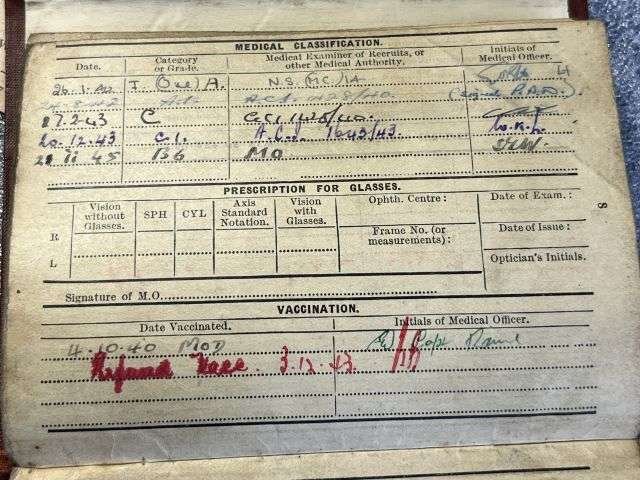 MEDICAL CLASSIFICATION.
Date. Category or Grade. Medical Examiner of Recruits, or other Medical Authority. Initials of Medical Officer.
I (One) A. NS (MC)/1A
27.2.43 C
20.12.43 C.1. A.C.I. 1643/43
11 45 B6 MO
PRESCRIPTION FOR GLASSES.
Vision without Glasses. SPH CYL Axis Standard Notation. Vision with Glasses. Ophth. Centre: Date of Exam.:
Frame No. (or measurements): Date of Issue:
R
L
Optician's Initials.
Signature of M.O.
8
VACCINATION.
Date Vaccinated. Initials of Medical Officer.
4.10.40 MOD Capt
Refused Vacc. 3.12.43